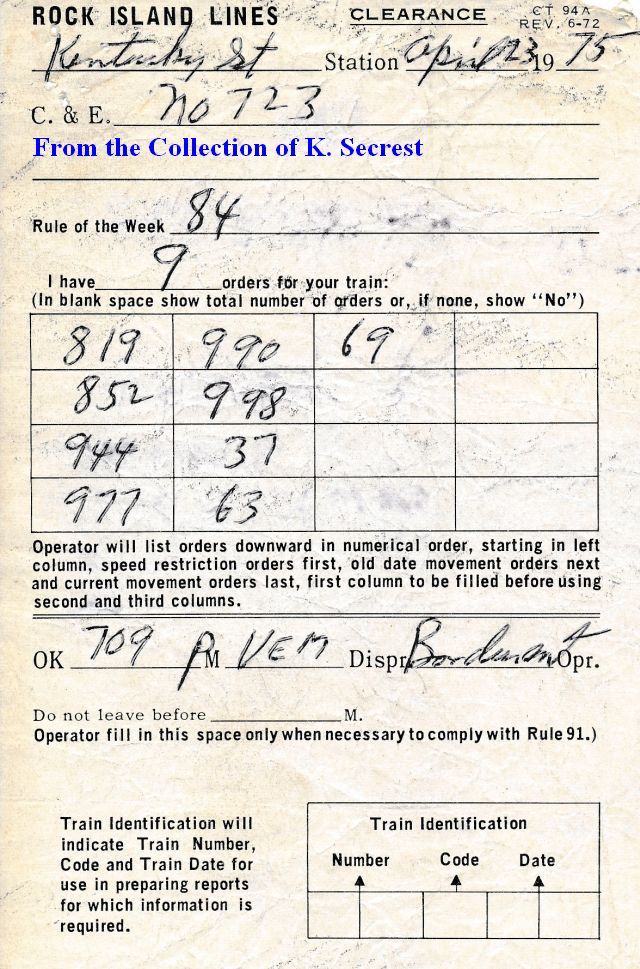 ROCK ISLAND LINES CLEARANCE CT 94A
REV. 6-72
Kentucky St Station April 23 19 75
C. & E. No 723
From the Collection of K. Secrest
Rule of the Week 84
I have 9 orders for your train:
(In blank space show total number of orders or, if none, show "No")
819 990 69
852 998
944 37
977 63
Operator will list orders downward in numerical order, starting in left
column, speed restriction orders first, old date movement orders next
and current movement orders last, first column to be filled before using
second and third columns.
OK 709 PM VEM Dispr. Opr.
Do not leave before M.
Operator fill in this space only when necessary to comply with Rule 91.)
Train Identification will
indicate Train Number,
Code and Train Date for
use in preparing reports
for which information is
required.
Train Identification
Number Code Date